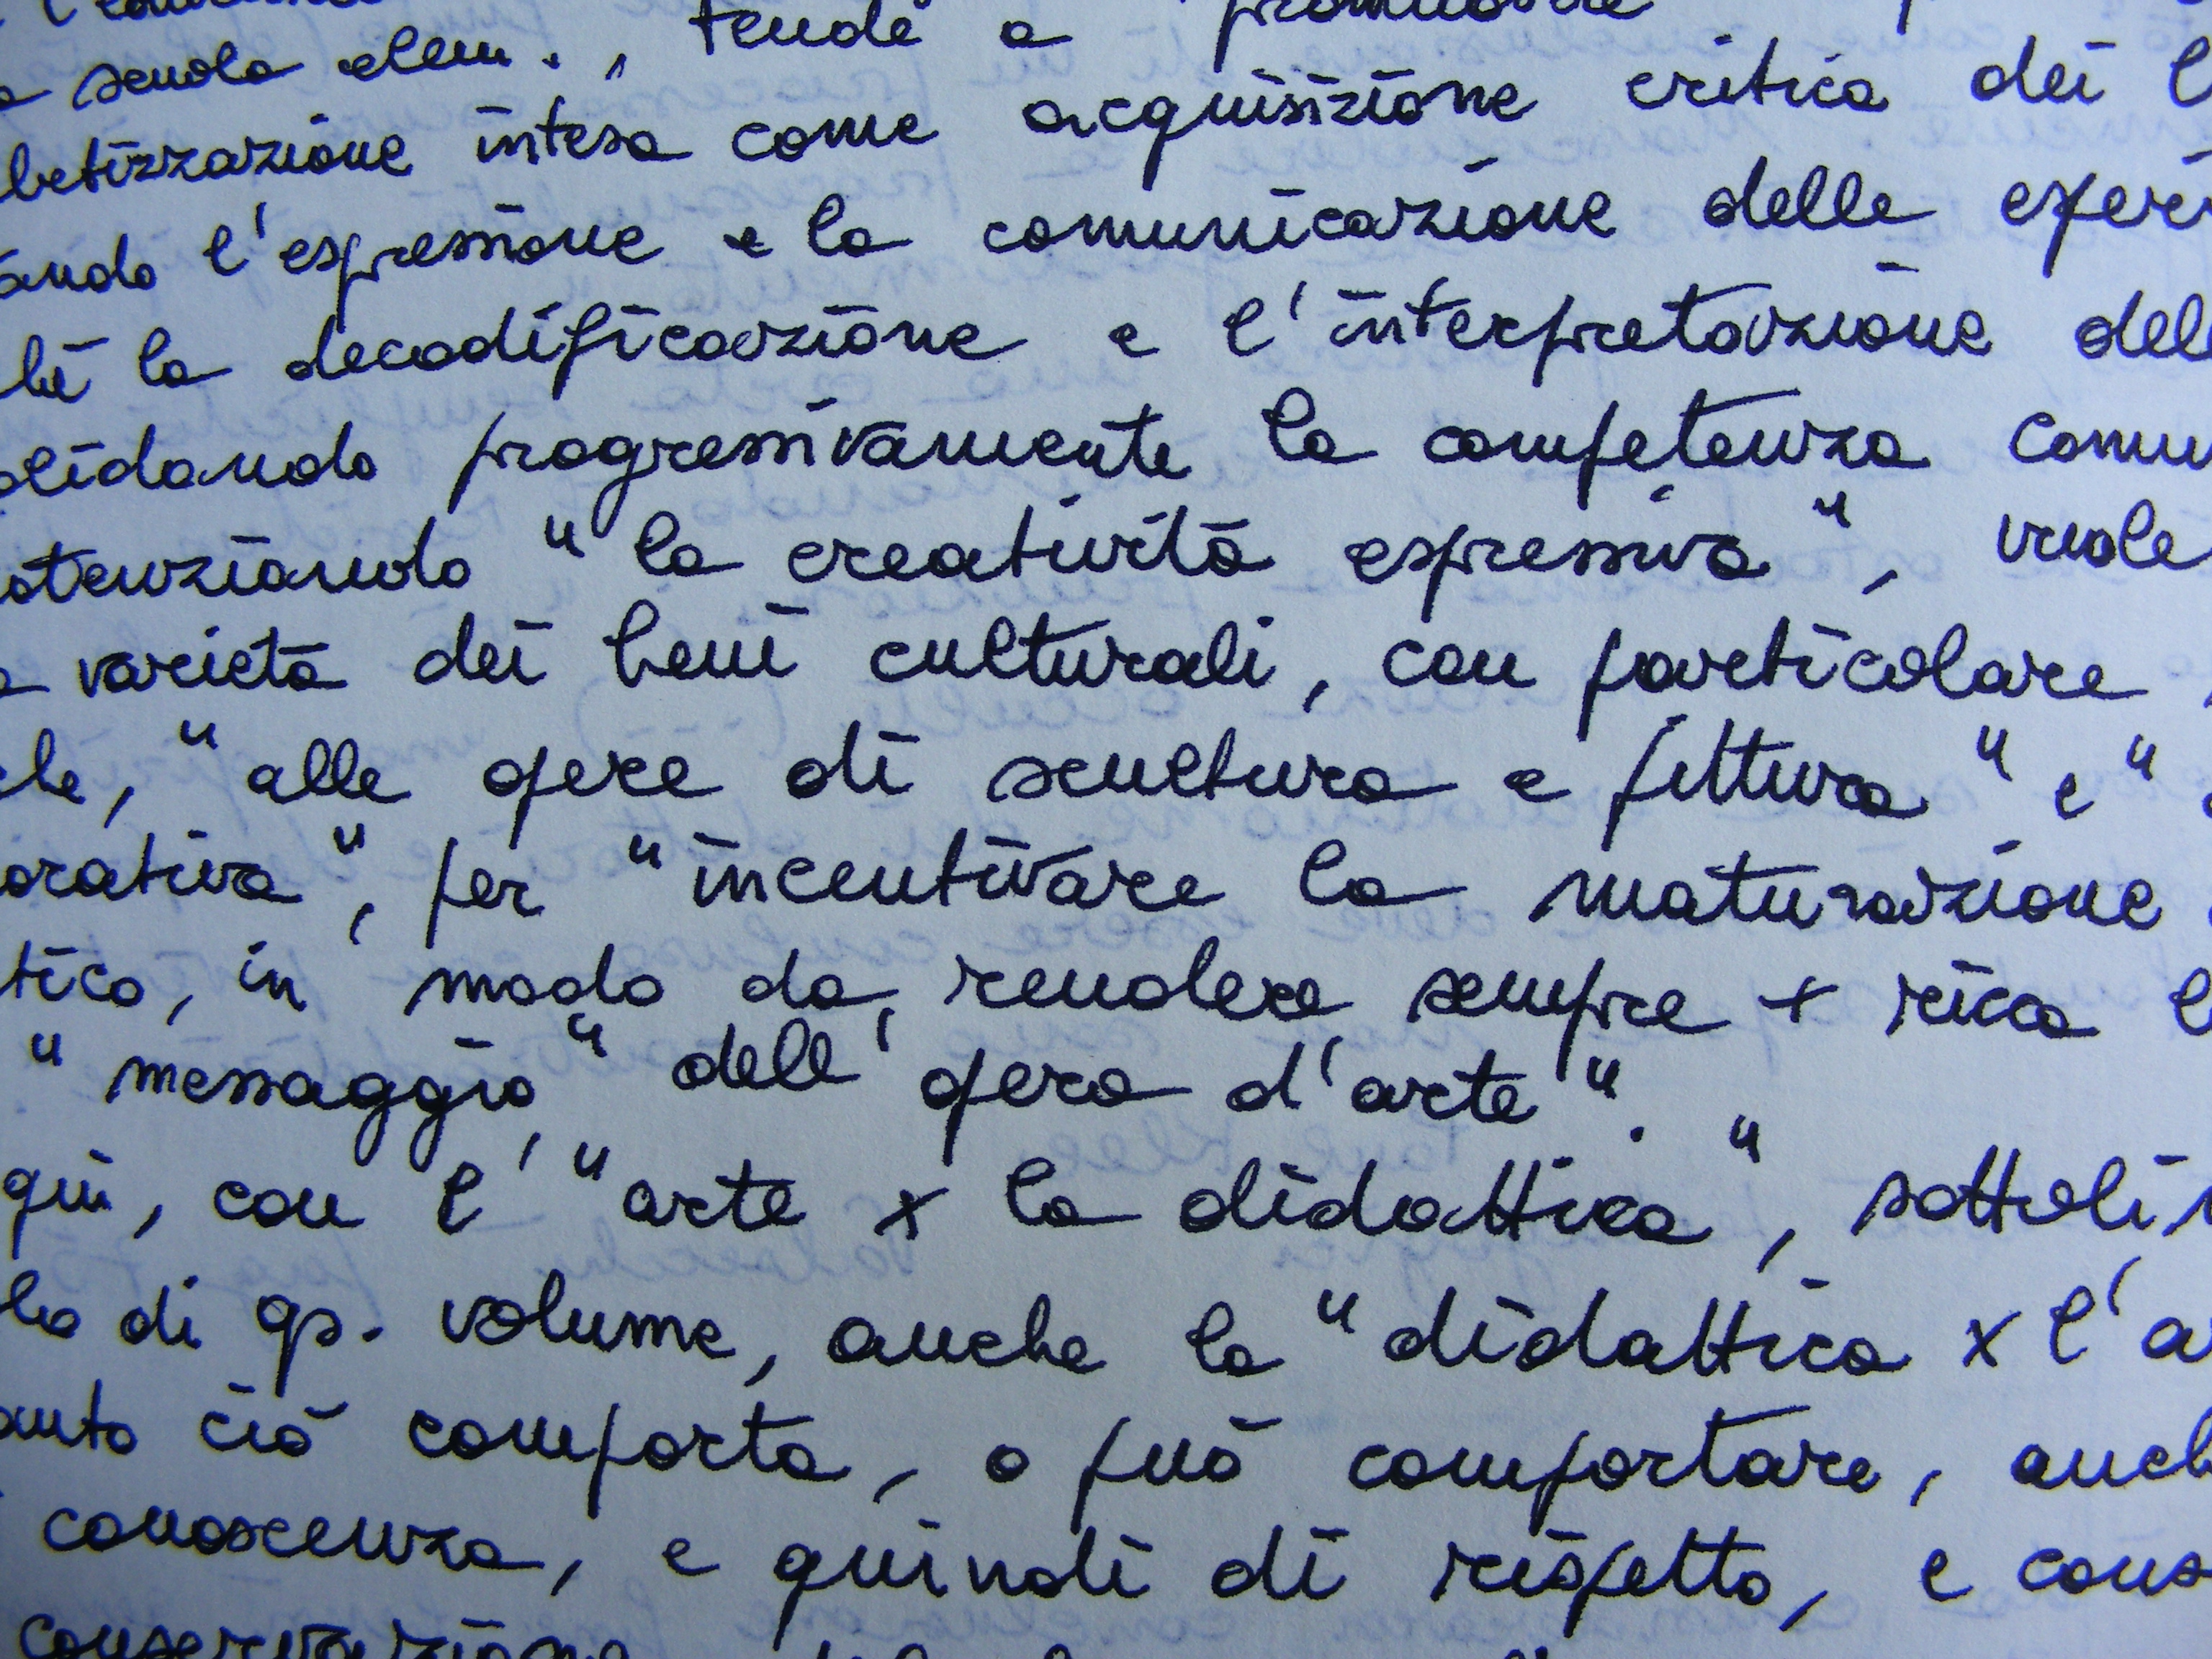 scuola elem., tende a promuovere
betizzazione intesa come acquisizione critica dei l
ando l'espressione e la comunicazione delle esper
hé la decodificazione e l'interpretazione del
olidando progressivamente la competenza comu
otenziando "la creatività espressiva", vuole
a varietà dei beni culturali, con particolare
che, "alle opere di scultura e pittura" e "
orativa", per "incentivare la maturazione
tico, in modo da rendere sempre + ricca l
"messaggio" dell'opera d'arte".
qui, con l'"arte x la didattica", sottolin
lo di qs. volume, anche la "didattica x l'a
anto ciò comporta, o può comportare, anch
conoscenza, e quindi di rispetto, e cons
conservazione